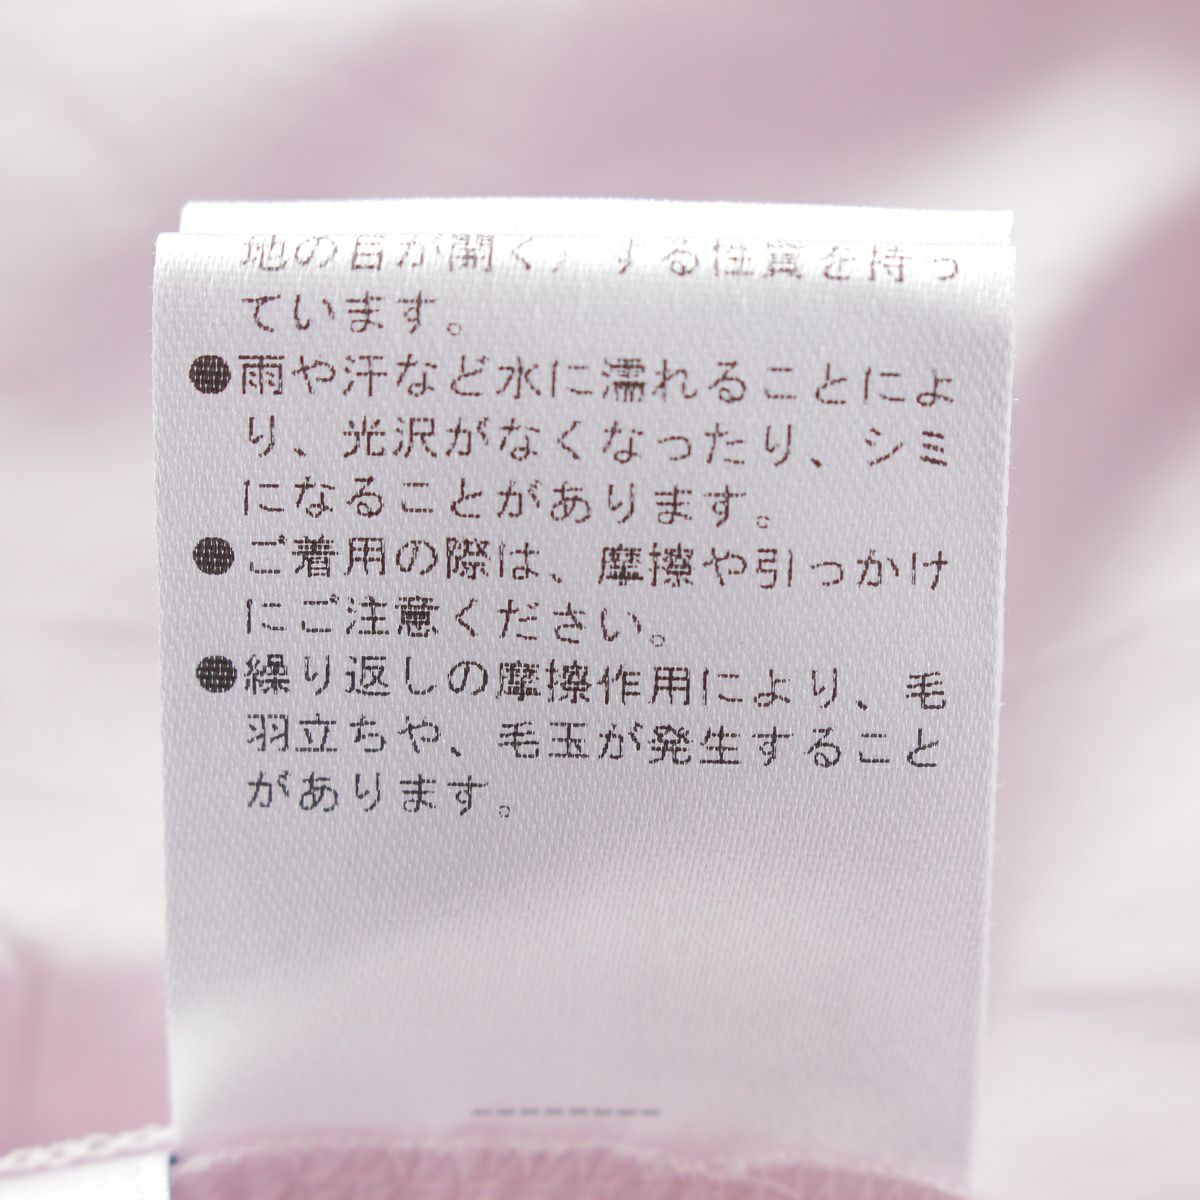 地の目が開く）する性質を持っ
ています。
●雨や汗など水に濡れることによ
り、光沢がなくなったり、シミ
になることがあります。
●ご着用の際は、摩擦や引っかけ
にご注意ください。
●繰り返しの摩擦作用により、毛
羽立ちや、毛玉が発生すること
があります。
---------